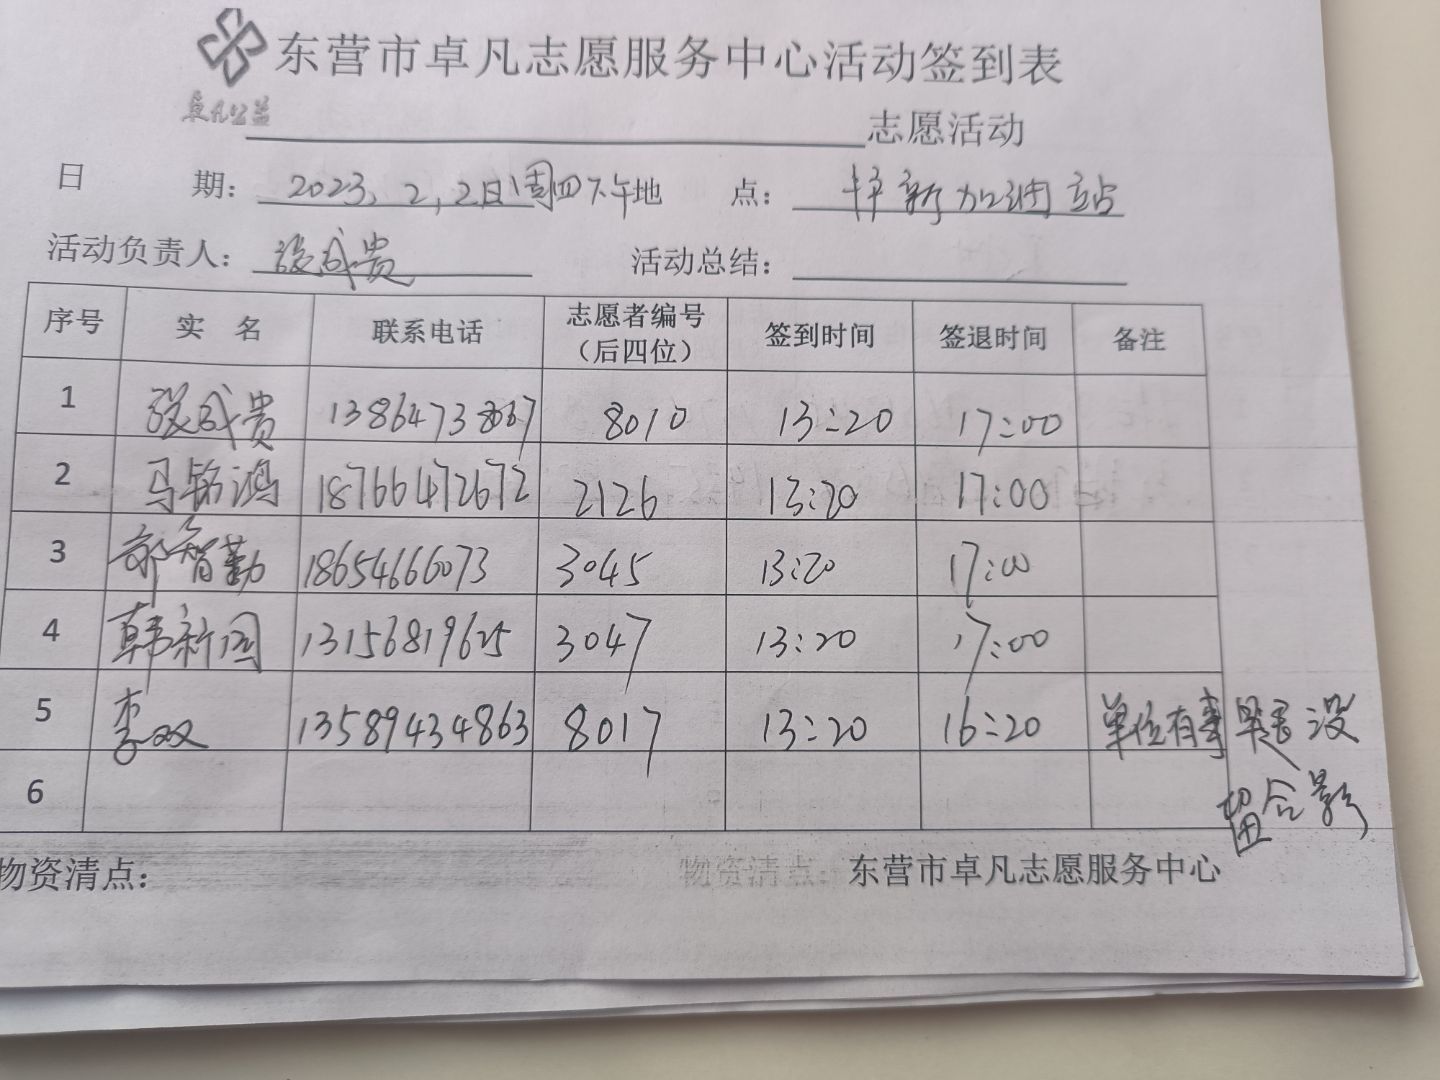 东营市卓凡志愿服务中心活动签到表
卓凡公益
志愿活动
日 期： 2023、2，2日周四下午 地 点： 加油站
活动负责人： 张成贵 活动总结：
序号 实 名 联系电话 志愿者编号（后四位） 签到时间 签退时间 备注
1 张成贵 8010 13:20 17:00
2 马铭鸿 18766472672 2126 13:20 17:00
3 郭智勤 18654666073 3045 13:20 17:00
4 韩新国 13156819625 3047 13:20 17:00
5 李双 13589434863 8017 13:20 16:20 单位有事早退没
留合影
6
物资清点： 物资清点：东营市卓凡志愿服务中心